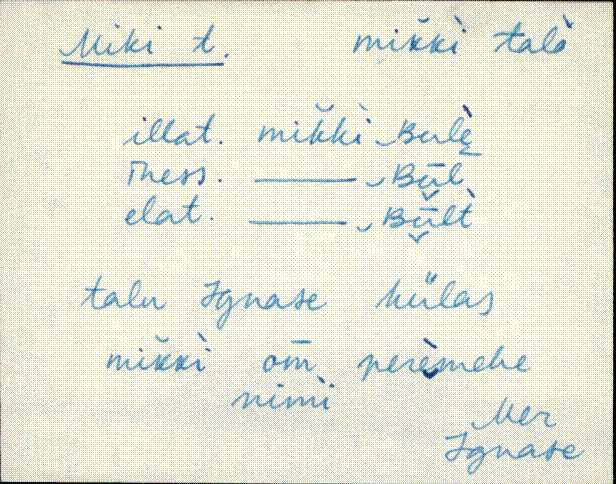 Miki t. mik̆kì talò
illat. mik̆kì ‿Bulè̬
iness. —— ‿Bū̬l
elat. —— ‿Bū̬lt̀
talu Ignase külas
mik̆kì om̄ perèmehe
nimì
Mer
Ignase